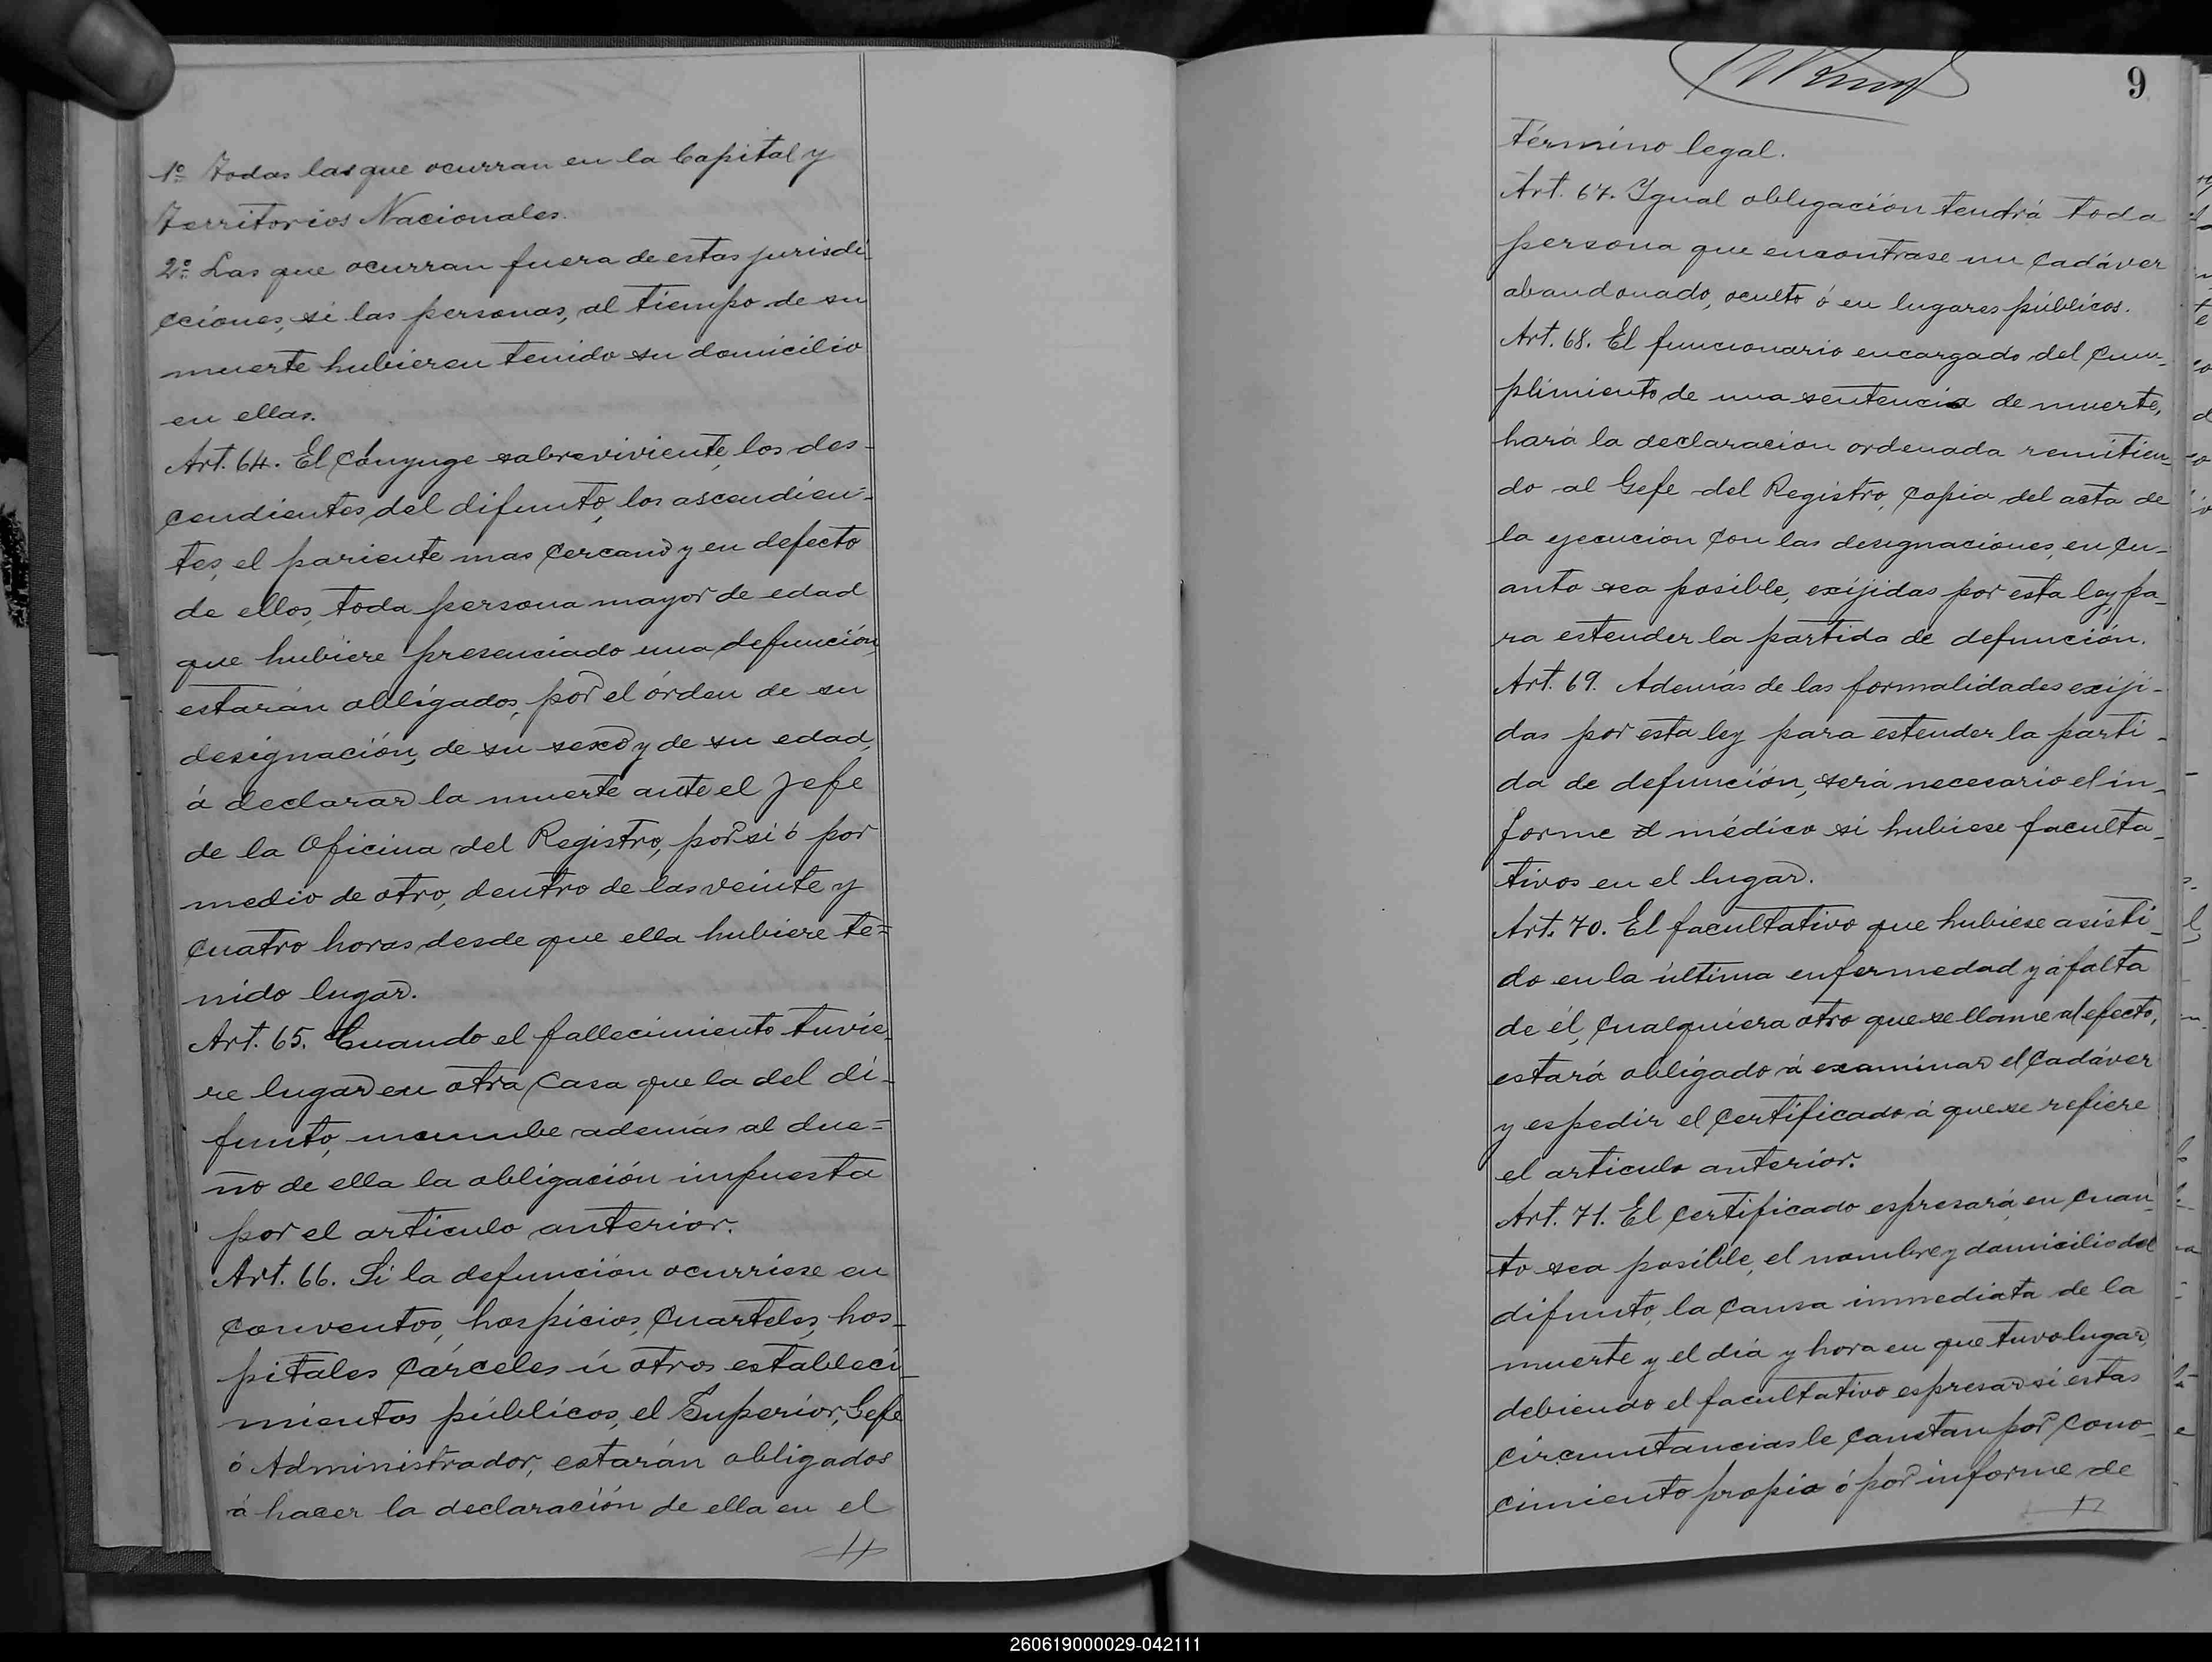 1º Todas las que ocurran en la Capital y
Territorios Nacionales.
2º Las que ocurran fuera de estas jurisdi
cciones, si las personas, al tiempo de su
muerte hubieren tenido su domicilio
en ellas.
Art. 64. El cónyuge sobreviviente, los des-
cendientes del difunto, los ascendien-
tes, el pariente mas cercano y en defecto
de ellos, toda persona mayor de edad
que hubiere presenciado una defunción,
estarán obligados, por el órden de su
designación, de su sexo y de su edad,
á declarar la muerte ante el Jefe
de la Oficina del Registro, por si ó por
medio de otro, dentro de las veinte y
cuatro horas desde que ella hubiere te=
nido lugar.
Art. 65. Cuando el fallecimiento tuvie-
re lugar en otra casa que la del di-
funto, incumbe además al due=
ño de ella la obligación impuesta
por el articulo anterior.
Art. 66. Si la defunción ocurriese en
conventos, hospicios, cuarteles, hos-
pitales cárceles ú otros estableci-
mientos públicos, el Superior, Gefe
ó Administrador, estarán obligados
á hacer la declaración de ella en el
9
término legal.
Art. 67. Igual obligación tendrá toda
persona que encontrase un cadáver
abandonado, oculto ó en lugares públicos.
Art. 68. El funcionario encargado del cum-
plimiento de una sentencia de muerte,
hará la declaración ordenada remitien-
do al Gefe del Registro, copia del acta de
la ejecucion con las designaciones, en cu-
anto sea posible, exijidas por esta ley, pa-
ra estender la partida de defunción.
Art. 69. Además de las formalidades exiji-
das por esta ley para estender la parti-
da de defunción, será necesario el in-
forme d médico si hubiese faculta-
tivos en el lugar.
Art. 70. El facultativo que hubiese asisti-
do en la última enfermedad y á falta
de él, cualquiera otro que se llame al efecto,
estará obligado á examinar el cadáver
y espedir el certificado á que se refiere
el articulo anterior.
Art. 71. El certificado espresará, en cuan-
to sea posible, el nombre y domicilio del
difunto, la causa inmediata de la
muerte y el día y hora en que tuvo lugar,
debiendo el facultativo espresar si estas
circunstancias le constan por cono-
cimiento propio ó por informe de
260619000029-042111